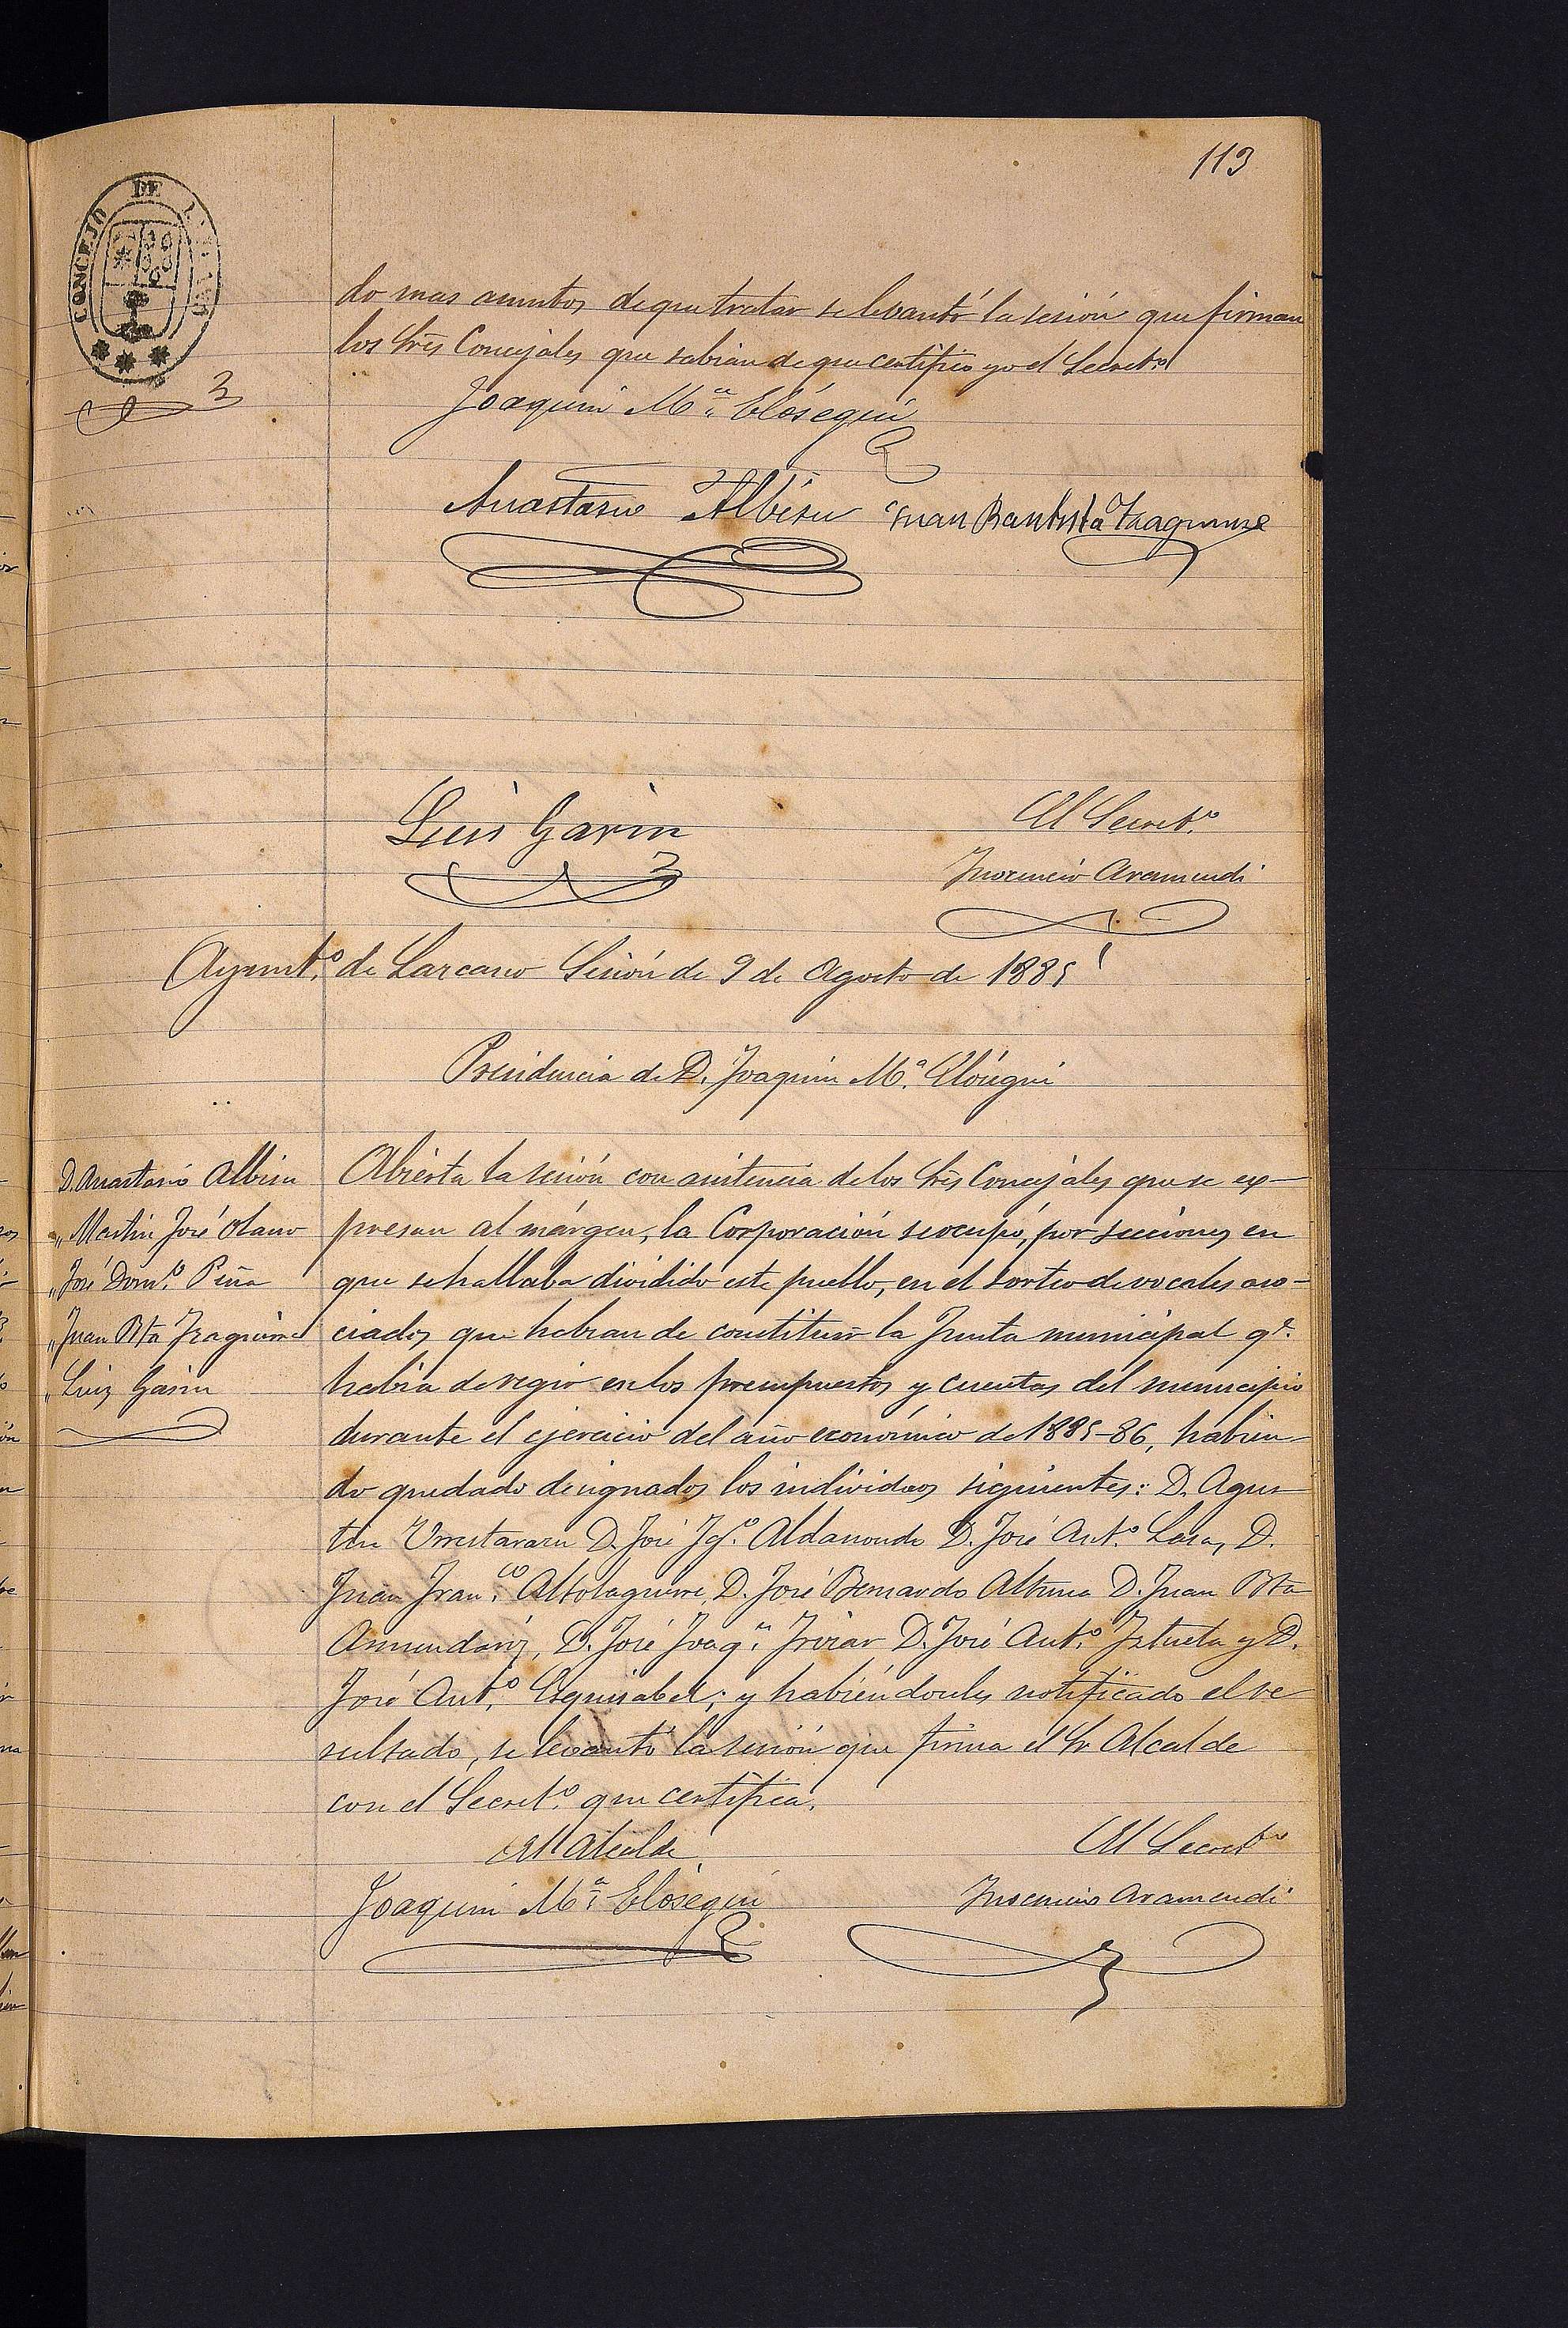 113
CONCEJO DE
do mas asuntos de que tratar se levantó la sesión que firman
los Srēs Concejales que sabian de que certifico yo el Secretº
Joaquin Mª Elósegui
Anastasio Albisu Juan Bautista Yraguirre
Luis Garin
El Secretº
Inocencio Aramendi
Ayuntº de Lazcano Sesión de 9 de Agosto de 1885
Presidencia de D. Joaquin Mª Elósegui
D. Anastasio Albisu
" Martin José Olano
" José Domº Piña
" Juan Bta Yraguirre
" Luis Garin
Abierta la sesión con asistencia de los Srēs Concejales que se ex-
presan al márgen, la Corporación se ocupó, por secciones en
que se hallaba dividido este pueblo, en el sorteo de vocales aso-
ciados que habian de constituir la Junta municipal qe
habia de regir en los presupuestos y cuentas del municipio
durante el ejercicio del año económico de 1885-86, habien-
do quedado designados los individuos siguientes: D. Agus
tin Urrutavazu D. José Igº Aldanondo D. José Antº Lasa, D.
Juan Franco Altolaguirre, D. José Bernardo Altuna D. Juan Bta
Armendariz, D. José Joaqn Irizar D. José Antº Iztueta y D.
José Antº Esquisabel; y habiéndoules notificado el re
sultado, se levantó la sesión que firma el Sr Alcalde
con el Secretº que certifica.
El Alcalde
El Secretº
Joaquin Mª Elósegui
Inocencio Aramendi